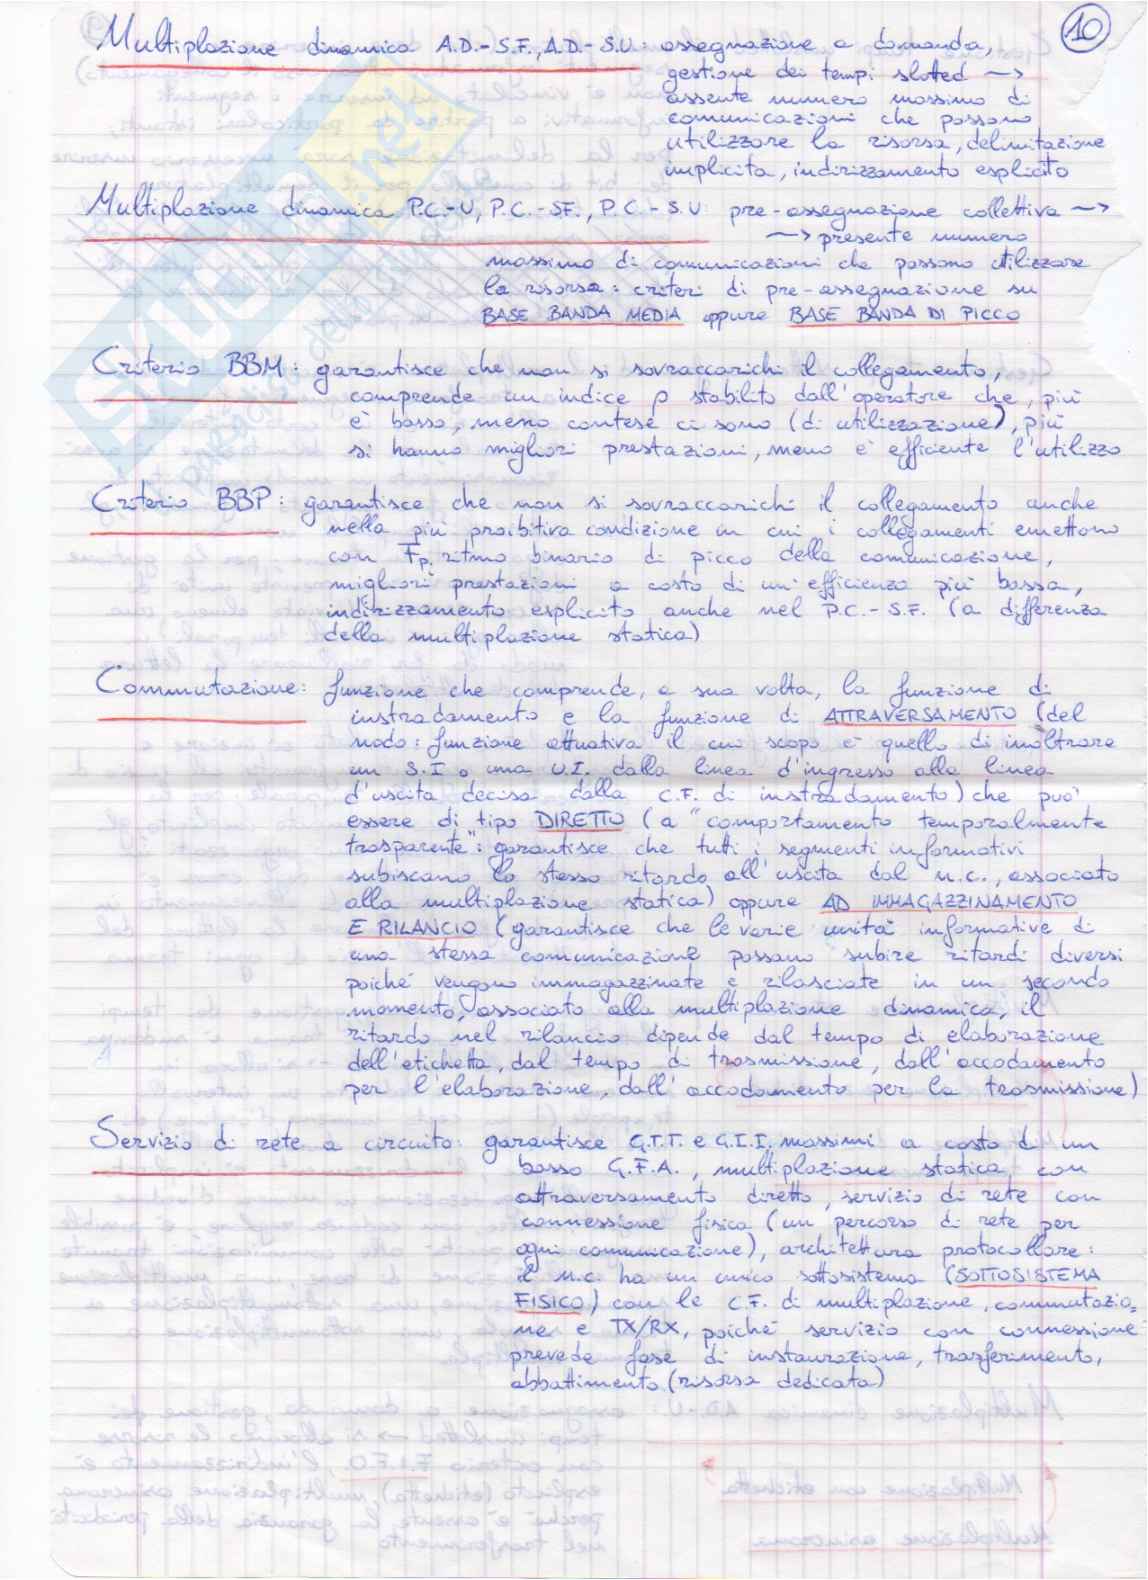 10
Multiplazione dinamica A.D.-S.F., A.D.-S.U.: assegnazione a domanda,
gestione dei tempi slotted →
assente numero massimo di
comunicazioni che possono
utilizzare la risorsa, delimitazione
implicita, indirizzamento esplicito
Multiplazione dinamica P.C.-U, P.C.-SF., P.C.-S.U: pre-assegnazione collettiva →
→ presente numero
massimo di comunicazioni che possono utilizzare
la risorsa: criteri di pre-assegnazione su
BASE BANDA MEDIA oppure BASE BANDA DI PICCO
Criterio BBM: garantisce che non si sovraccarichi il collegamento,
comprende un indice ρ stabilito dall'operatore che, più
è basso, meno contese ci sono (di utilizzazione), più
si hanno migliori prestazioni, meno è efficiente l'utilizzo
Criterio BBP: garantisce che non si sovraccarichi il collegamento anche
nella più proibitiva condizione in cui i collegamenti emettono
con Fpi ritmo binario di picco della comunicazione,
migliori prestazioni a costo di un'efficienza più bassa,
indirizzamento esplicito anche nel P.C.-S.F. (a differenza
della multiplazione statica)
Commutazione: funzione che comprende, a sua volta, la funzione di
instradamento e la funzione di ATTRAVERSAMENTO (del
nodo: funzione attuativa il cui scopo è quello di inoltrare
un S.I o una U.I. dalla linea d'ingresso alla linea
d'uscita decisa dalla C.F. di instradamento) che può
essere di tipo DIRETTO (a "comportamento temporalmente
trasparente": garantisce che tutti i segmenti informativi
subiscano lo stesso ritardo all'uscita dal n.c., associato
alla multiplazione statica) oppure AD IMMAGAZZINAMENTO
E RILANCIO (garantisce che le varie unità informative di
una stessa comunicazione possano subire ritardi diversi
poiché vengono immagazzinate e rilasciate in un secondo
momento, associato alla multiplazione dinamica, il
ritardo nel rilancio dipende dal tempo di elaborazione
dell'etichetta, dal tempo di trasmissione, dall'accodamento
per l'elaborazione, dall'accodamento per la trasmissione)
Servizio di rete a circuito: garantisce G.T.T. e G.I.I. massimi a costo di un
basso G.F.A., multiplazione statica, con
attraversamento diretto, servizio di rete con
connessione fisica (un percorso di rete per
ogni comunicazione), architettura protocollare:
il n.c. ha un unico sottosistema (SOTTOSISTEMA
FISICO) con le C.F. di multiplazione, commutazio=
ne e TX/RX, poiché servizio con connessione
prevede fase di instaurazione, trasferimento,
abbattimento (risorsa dedicata)